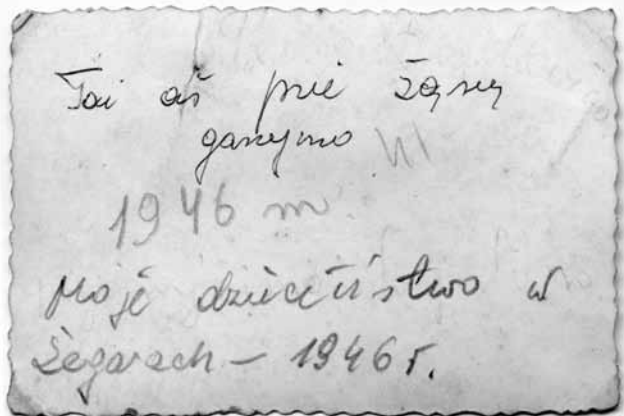 Tai aš prie žąsų
ganymo
1946 m
Moje dzieciństwo w
Żegarach – 1946 r.